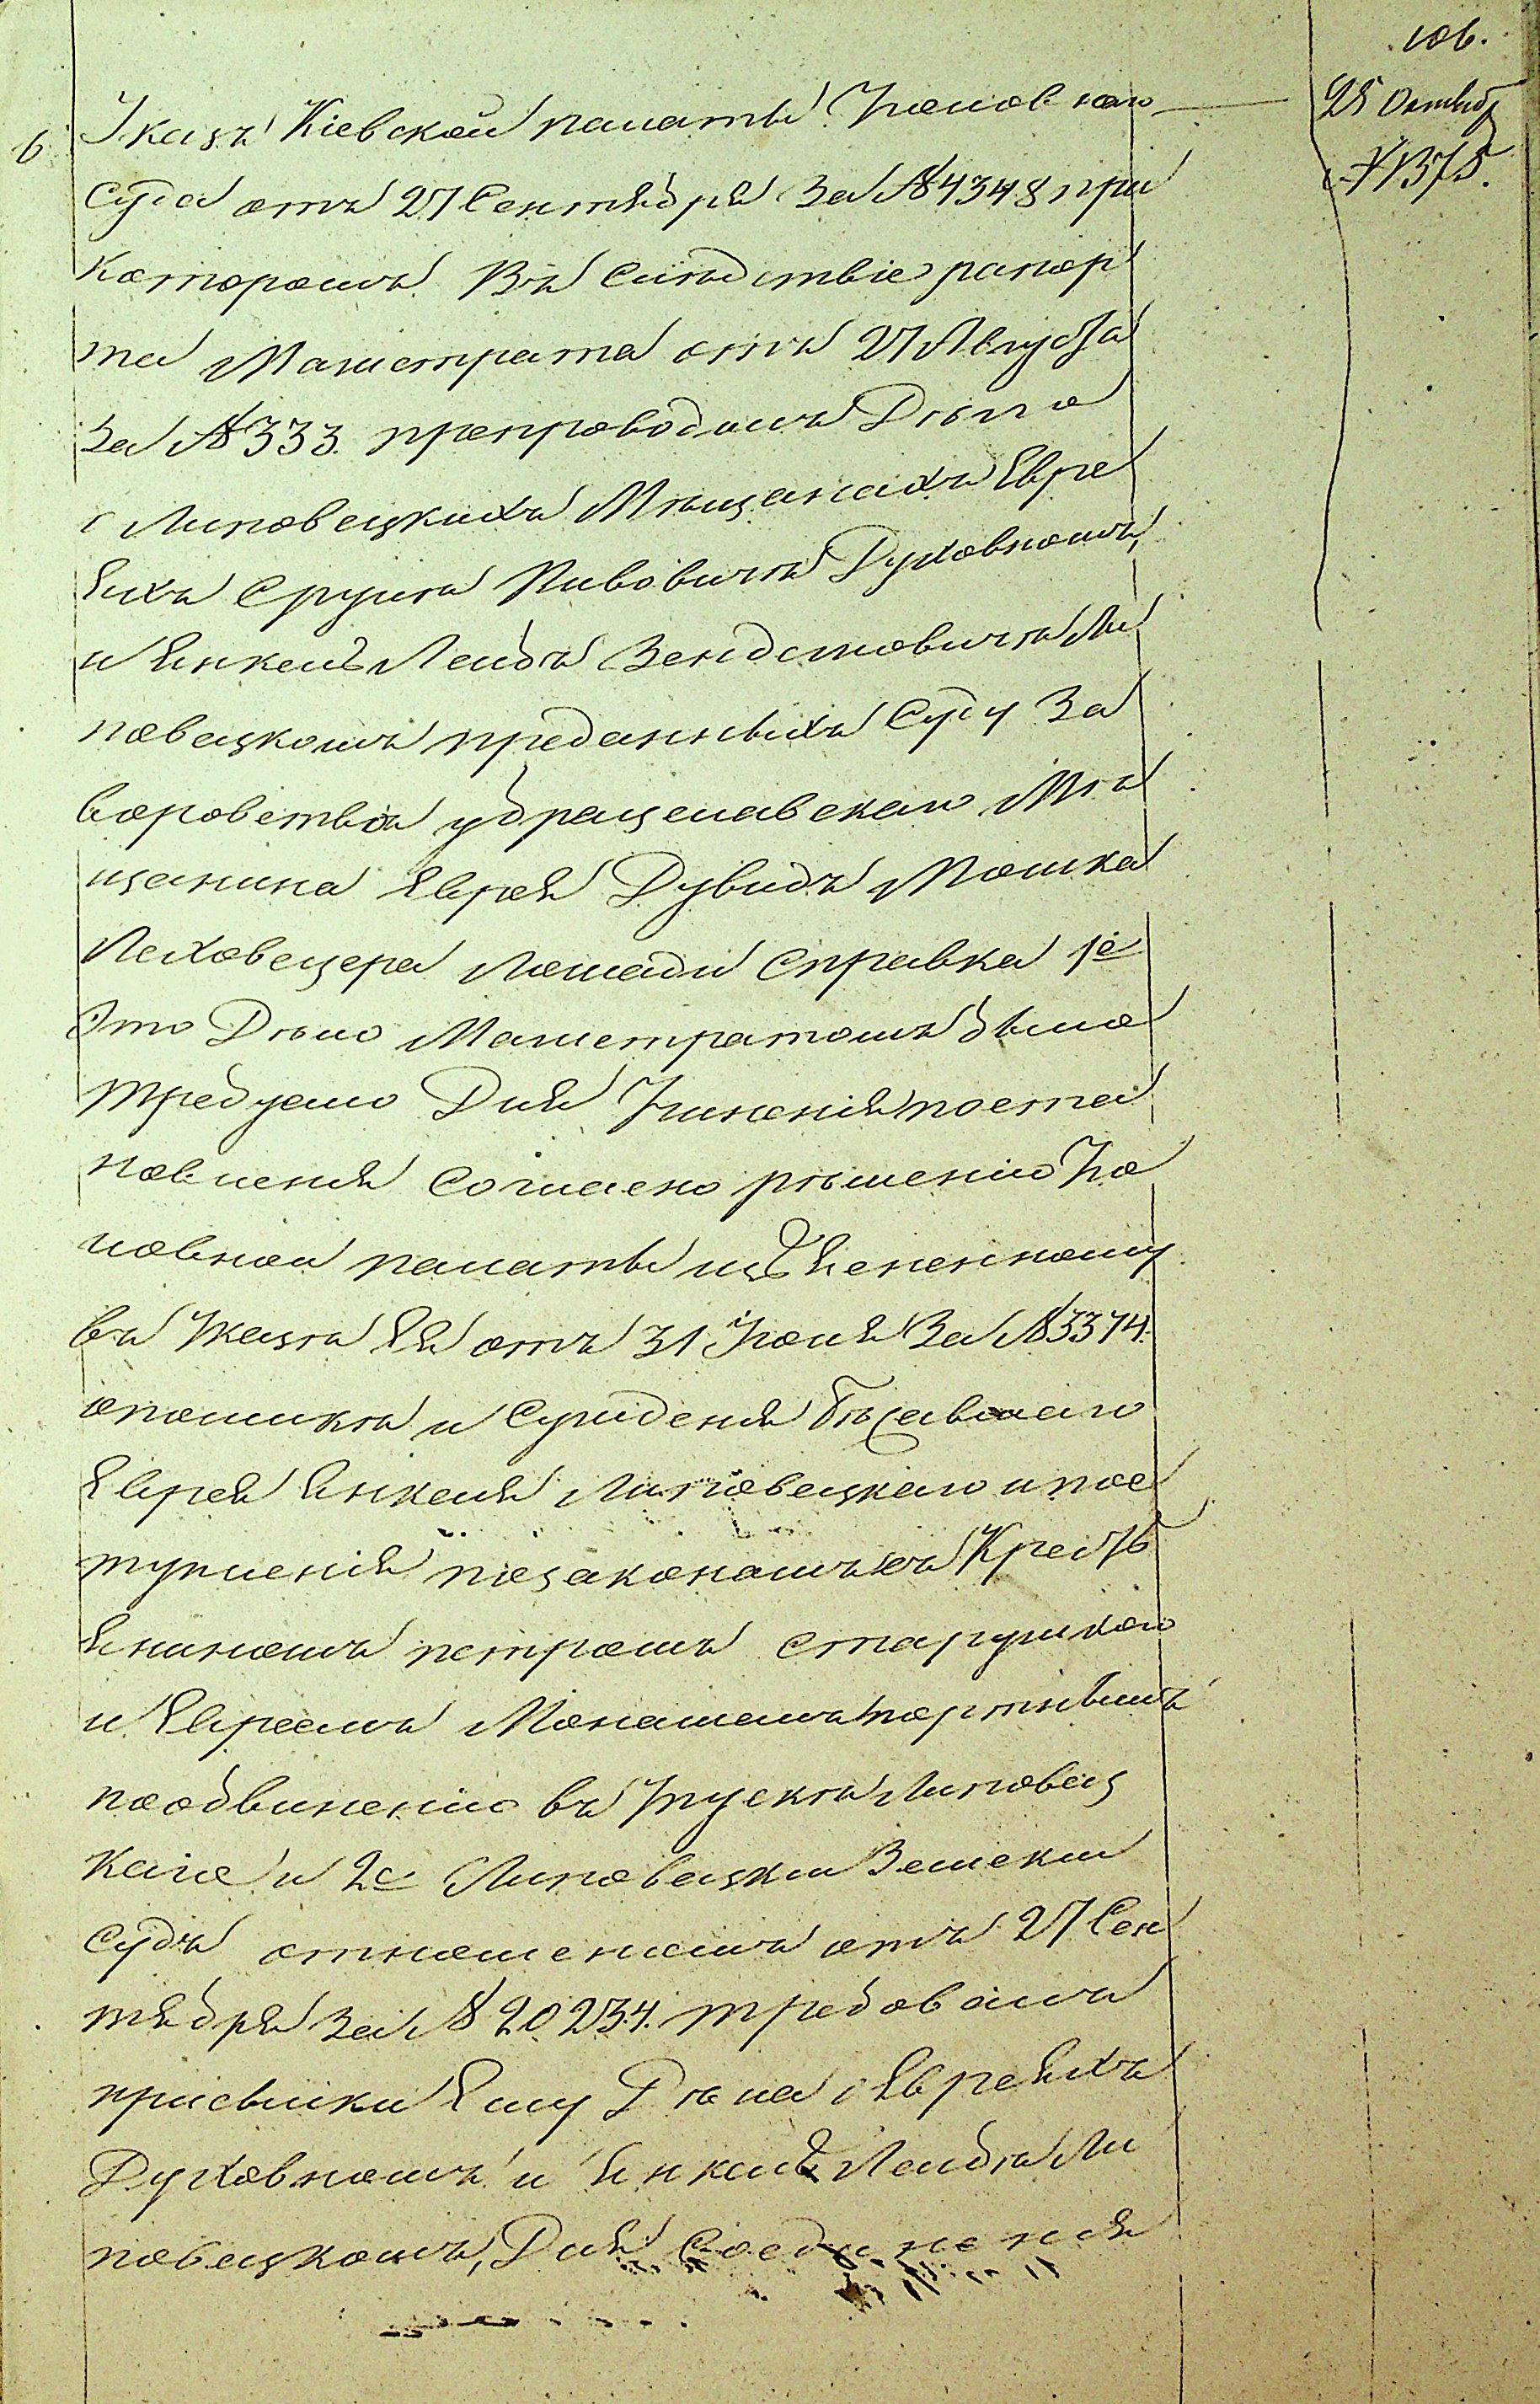 106.
25 Октябр
№ 1375.
6 Указъ Кіевской палаты Уголовнаго
суда отъ 27 Сентября За № 4348 при
которомъ Въ Слѣдствіе рапор
та Магистрата отъ 27 Августа
За № 333. препроводила Дѣло
о Липовецкихъ Мѣщанахъ Евре
яхъ Срулѣ Ливовичѣ Духовномъ,
и Янкель Лейбѣ Зендиловичѣ Ли
повецкомъ преданныхъ Суду За
воровство у брацлавскаго Мѣ
щанина Еврея Дувидъ Мошка
Леховецера Лошади Справка 1е
Это Дѣло Магистратомъ было
требуемо Для Учиненія поста
новленія Согласно рѣшенію Уго
ловной палаты изъясненному
въ Указѣ Ея отъ 31 Іюля За № 3374.
опоимкѣ и Сужденія бѣжавшаго
Еврея Янкеля Липовецкаго и пос
тупленія по законамъ съ Кресть
яниномъ петромъ старушкою
и Евреемъ Монашемъ портнымъ
по обвиненію въ Упускѣ Липовец
каго и 2е Липовецкій Земскій
судъ отношеніемъ отъ 27 Сен
тября За № 20234. требовалъ
присылки Ему Дѣла о Евреяхъ
Духовномъ и Янкелѣ Лейбѣ Ли
повецкомъ, Для Соединенія